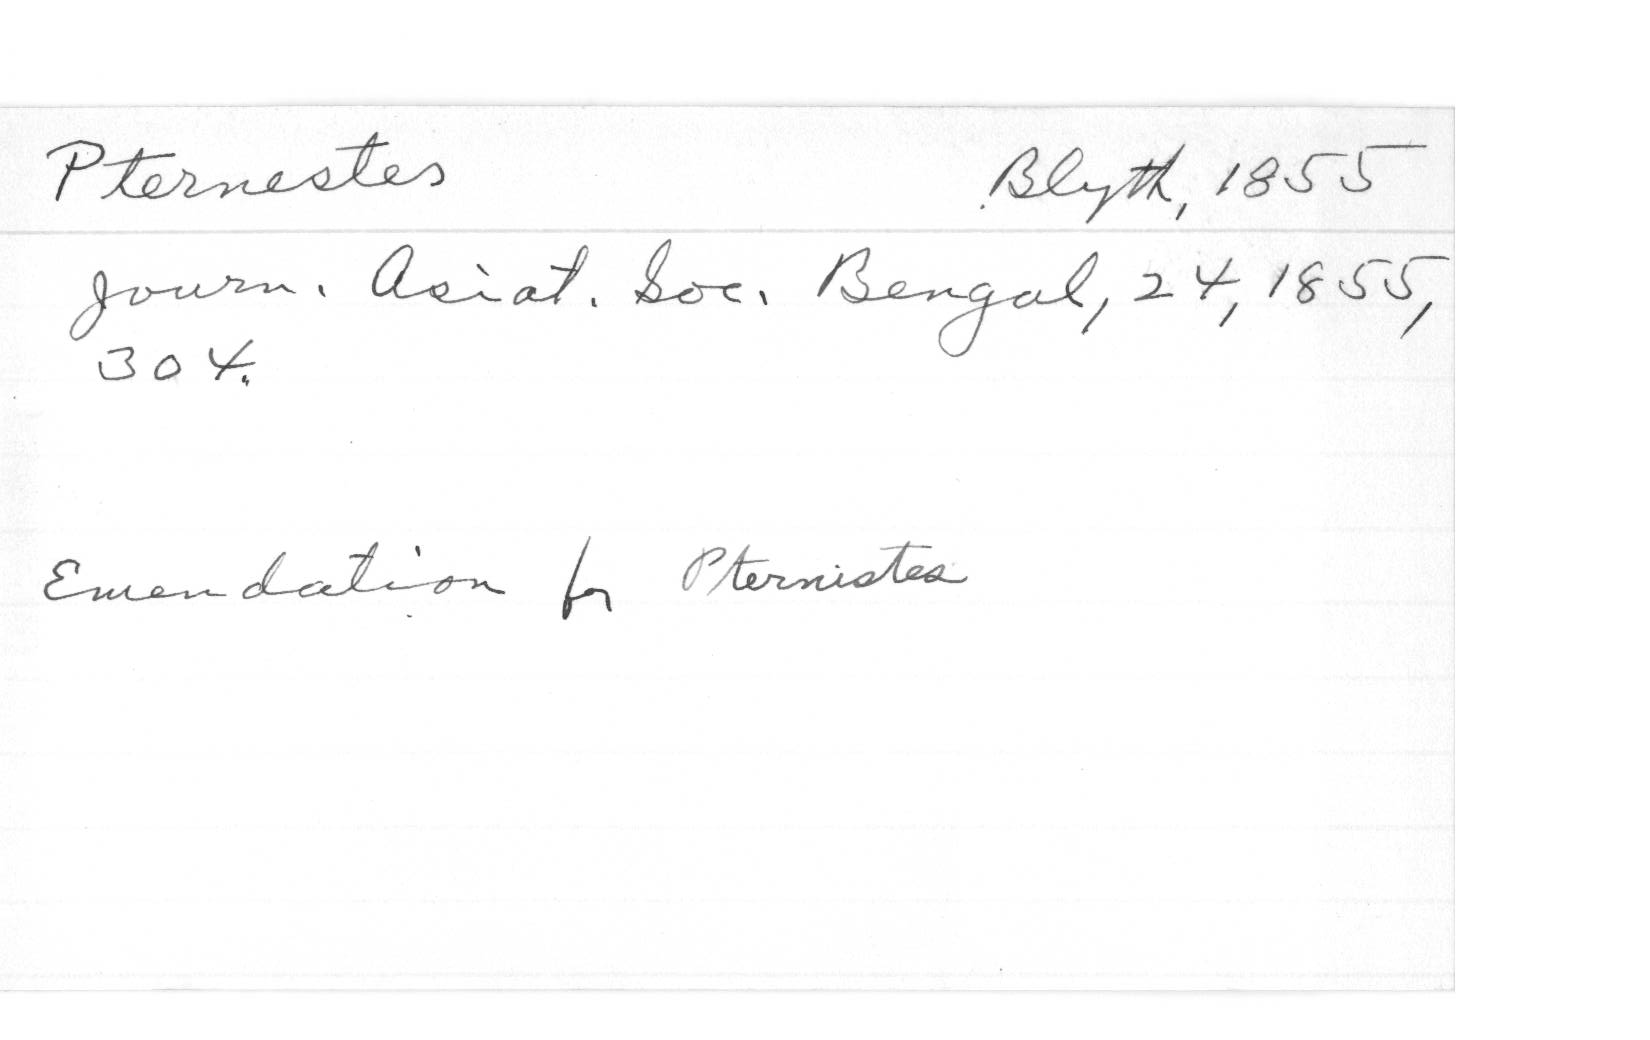 Pternestes Blyth, 1855
Journ. Asiat. Soc. Bengal, 24, 1855,
304.
Emendation for Pternistes